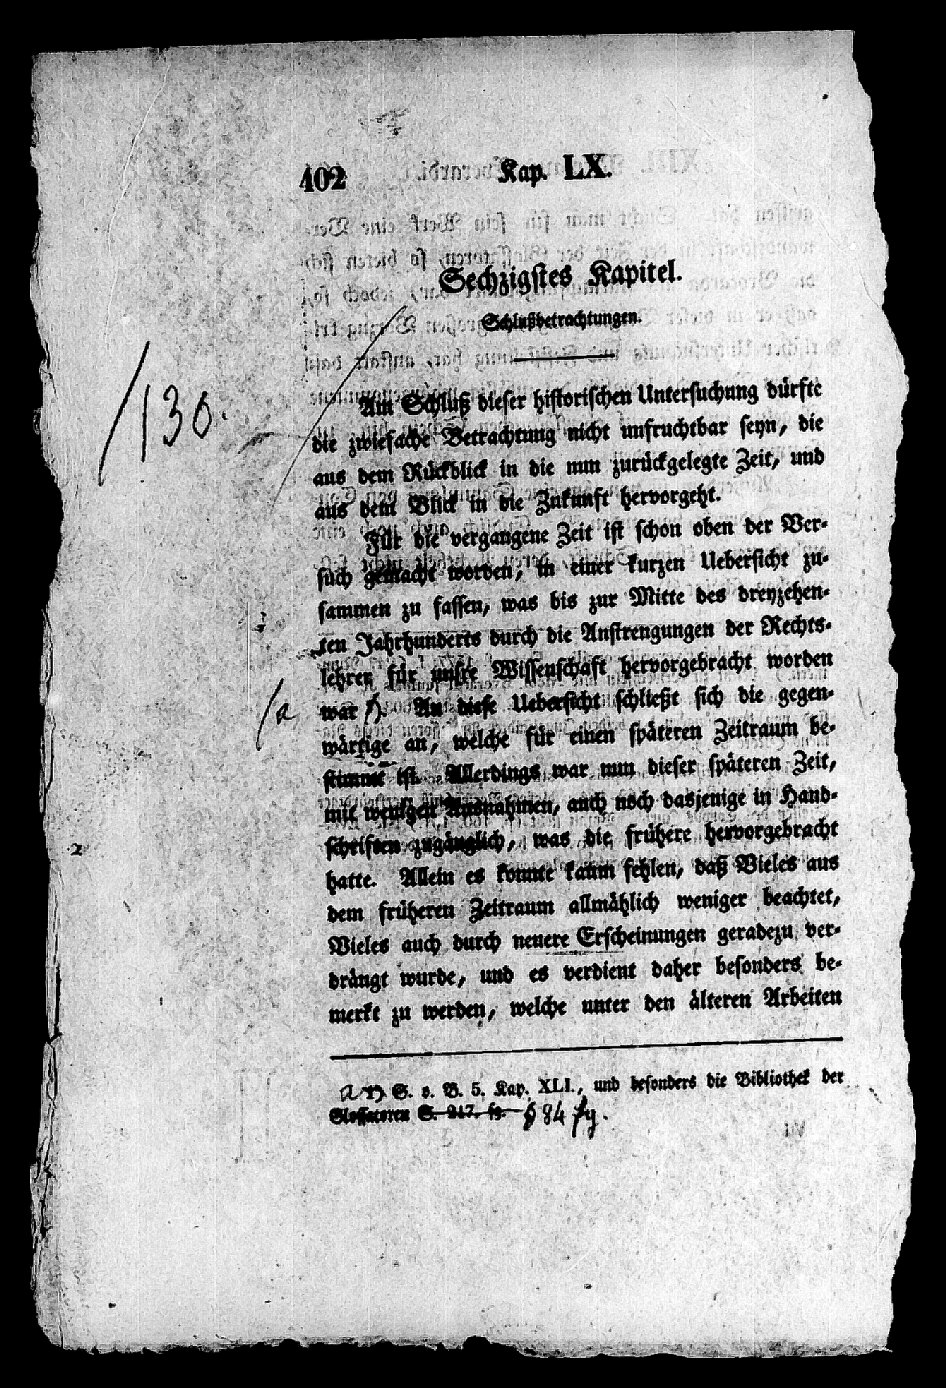 402 Kap. LX.
Sechzigstes Kapitel.
Schlußbetrachtungen.
/130.
Am Schluß dieser historischen Untersuchung dürfte
die zwiefache Betrachtung nicht unfruchtbar seyn, die
aus dem Rückblick in die nun zurückgelegte Zeit, und
aus dem Blick in die Zukunft hervorgeht.
Für die vergangene Zeit ist schon oben der Ver-
such gemacht worden, in einer kurzen Uebersicht zu-
sammen zu fassen, was bis zur Mitte des dreyzehen-
ten Jahrhunderts durch die Anstrengungen der Rechts-
lehrer für unsre Wissenschaft hervorgebracht worden
/a war 1). An diese Uebersicht schließt sich die gegen-
wärtige an, welche für einen späteren Zeitraum be-
stimmt ist. Allerdings war nun dieser späteren Zeit,
mit wenigen Ausnahmen, auch noch dasjenige in Hand-
schriften zugänglich, was die frühere hervorgebracht
hatte. Allein es konnte kaum fehlen, daß Vieles aus
dem früheren Zeitraum allmählich weniger beachtet,
Vieles auch durch neuere Erscheinungen geradezu ver-
drängt wurde, und es verdient daher besonders be-
merkt zu werden, welche unter den älteren Arbeiten
a 1) S. o. B. 5. Kap. XLI., und besonders die Bibliothek der
Glossatoren S. 217. fg. § 84 fg.